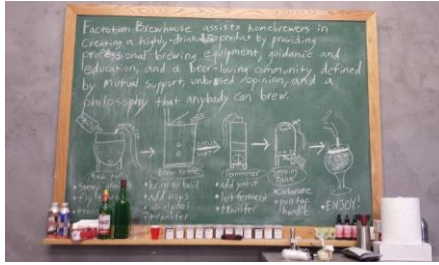 Factotum Brewhouse assists homebrewers in
creating a highly-drinkable product by providing
professional brewing equipment, guidance and
education, and a beer-loving community defined
by mutual support, unbiased opinion, and a
philosophy that anybody can brew.
Mash Tun
Brew Kettle
Fermenter
Serving Tank
• bring to boil
• add hops
• whirlpool
• transfer
• add yeast
• let ferment
• transfer
• carbonate
• pull tap
handle
• ENJOY!